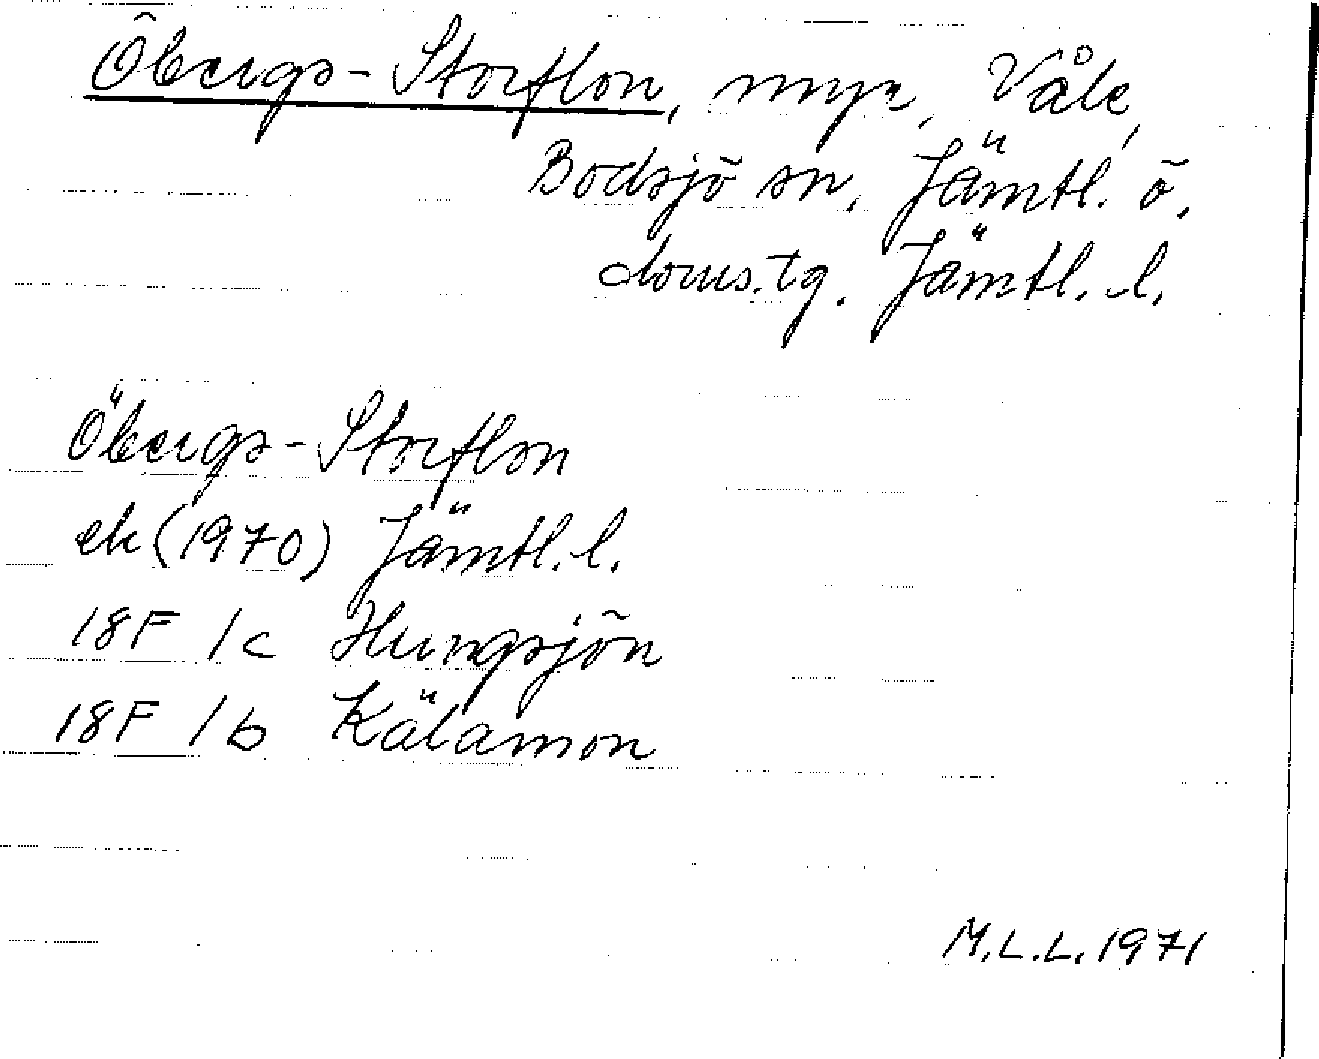 Öbergs-Storflon, myr, Våle,
Bodsjö sn, Jämtl. ö.
doms.tg. Jämtl. l.
Öbergs-Storflon
ek (1970) Jämtl. l.
18F 1c Hungsjön
18F 1b Kälamon
M.L.L. 1971